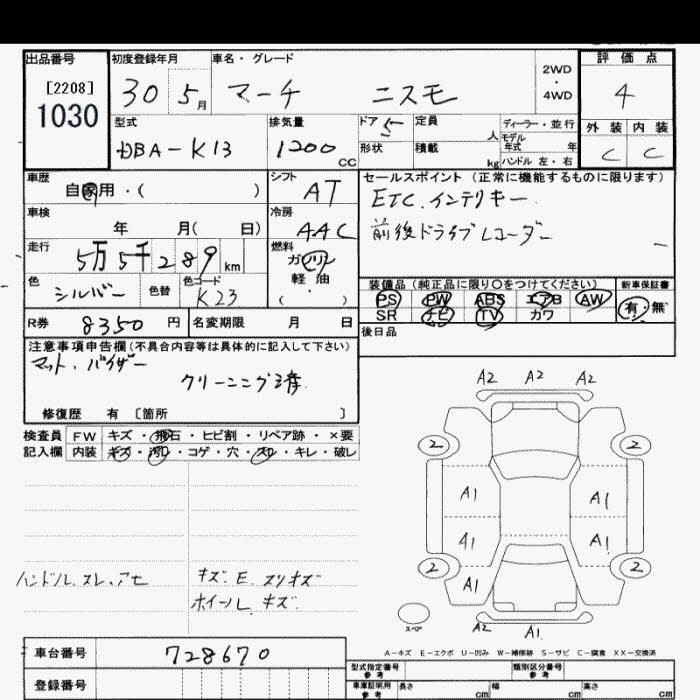 出品番号 初度登録年月 車名・グレード 評価点
[2208] 30 5月 マーチ ニスモ 2WD・4WD 4
1030
型式 排気量 ドア 5 定員 人 ディーラー・並行 外装 内装
DBA-K13 1200 CC 形状 積載 kg モデル年式 年 C C
ハンドル 左・右
車歴 シフト セールスポイント(正常に機能するものに限ります)
自家用・( ) AT ETC.インテリキー
車検 冷房 前後ドライブレコーダー
年 月( 日) AAC
走行 燃料
5万5千289km ガソリン
色 色替 色コード 軽油 装備品(純正品に限り○をつけてください) 新車保証書
シルバー K23 ( ・ ) PS PW ABS エアB AW 有・無
R券 8350円 名変期限 月 日 SR ナビ TV カワ
注意事項申告欄(不具合内容等は具体的に記入して下さい) 後日品
マット.バイザー
クリーニング済
修復歴 有 〔箇所 〕
検査員 FW キズ・飛石・ヒビ割・リペア跡・×要
記入欄 内装 キズ・汚レ・コゲ・穴・スレ・キレ・破レ
A2 A2 A2
2 2
A1 A1
A1 A1
2 2
A1
ハンドル スレ.アセ キズ.E.スリキズ
ホイール キズ
スペア A2 A1
A-キズ E-エクボ U-凹み W-補修跡 S-サビ C-腐食 XX-交換済
車台番号 728670 型式指定番号 参考 類別区分番号 参考
登録番号 車車証明用 参考 長さ cm 幅 cm 高さ cm